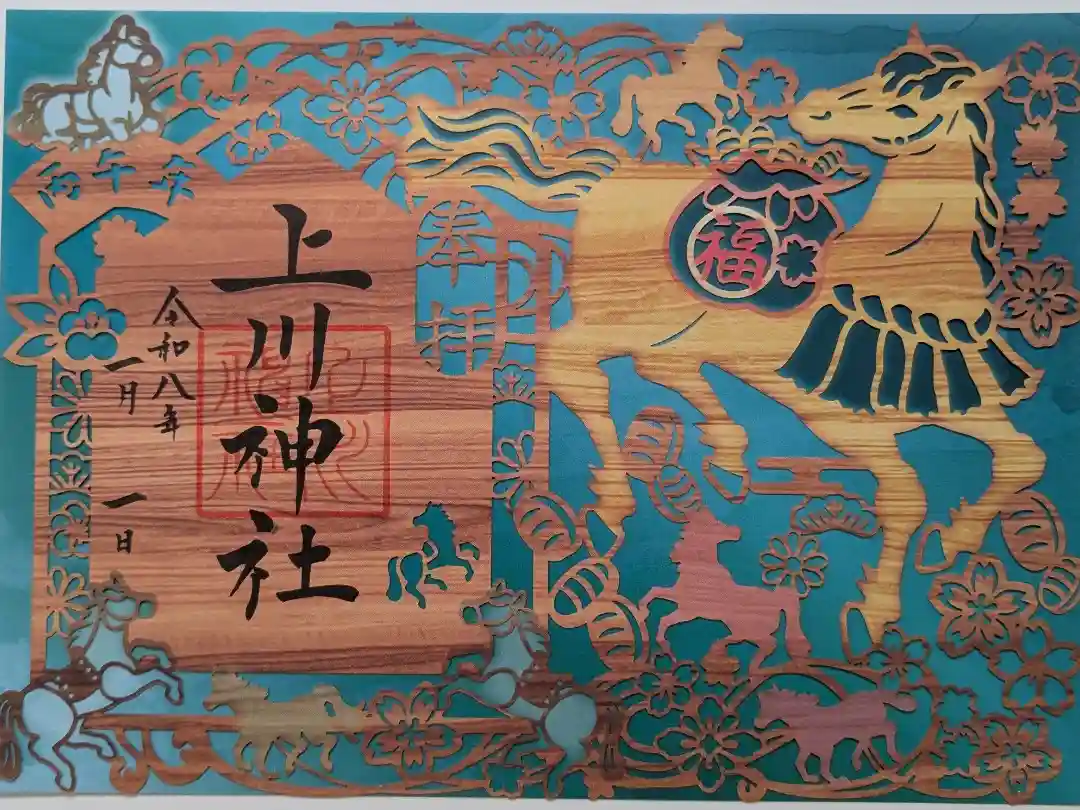 福
奉拝
上川神社
令和八年
一月 一日
丙午